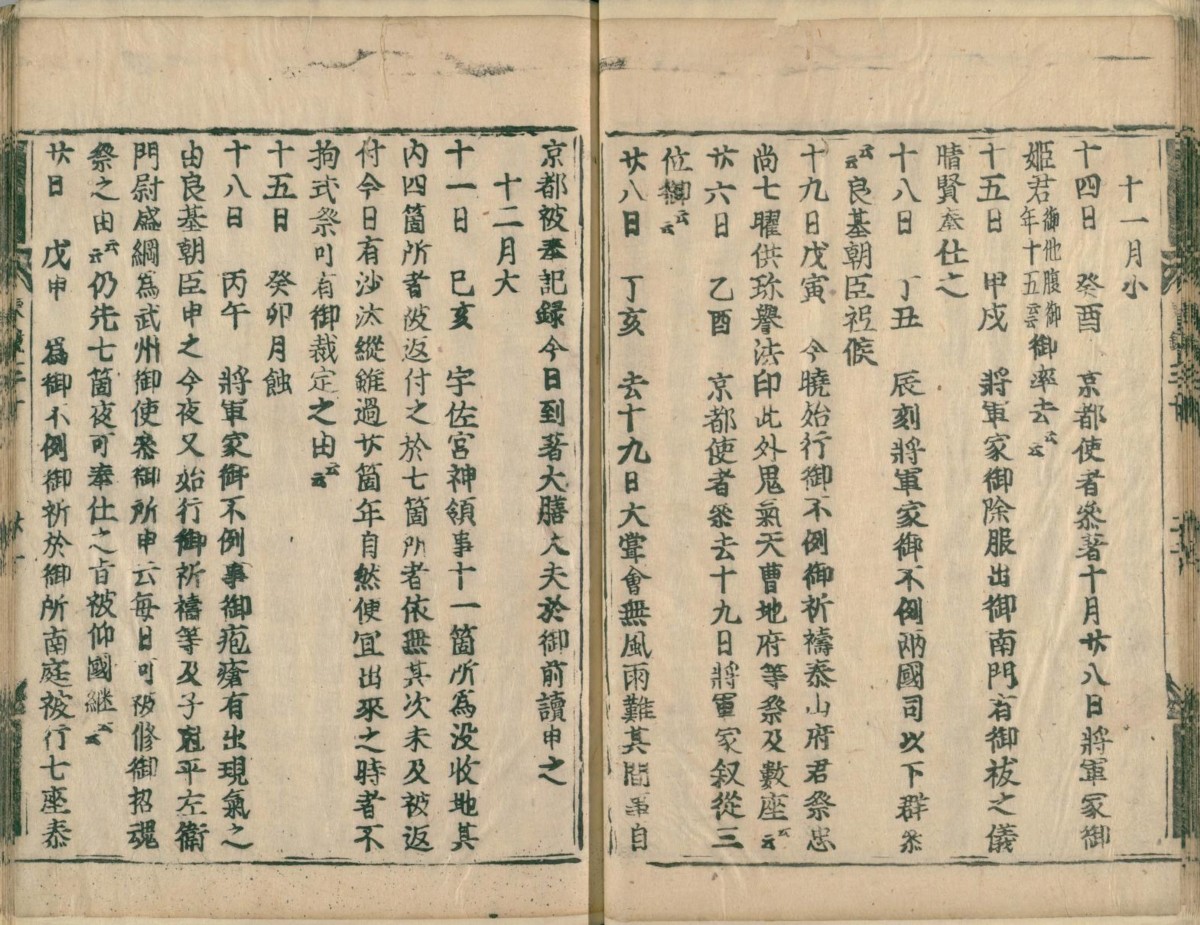 十一月小
十四日　癸酉　京都使者參著十月廿八日將軍家御
姬君御他腹御年十五云々御卒去云々
十五日　甲戌　將軍家御除服出御南門有御祓之儀
晴賢奉仕之
十八日　丁丑　辰刻將軍家御不例兩國司以下群參
云々良基朝臣祗候
十九日戊寅　今曉始行御不例御祈禱泰山府君祭忠
尚七曜供珎譽法印此外鬼氣天曹地府等祭及數座云々
廿六日　乙酉　京都使者參去十九日將軍家叙從三
位御云々
廿八日　丁亥　去十九日大嘗會無風雨難其間事自
京都被奉記録今日到著大膳大夫於御前讀申之
十二月大
十一日　己亥　宇佐宮神領事十一箇所為没收地其
内四箇所者被返付之於七箇所者依無其次未及被返
付今日有沙汰縱雖過廿箇年自然便宜出來之時者不
拘式祭可有御裁定之由云々
十五日　癸卯月蝕
十八日　丙午　將軍家御不例事御疱瘡有出現氣之
由良基朝臣申之今夜又始行御祈禱等及子尅平左衛
門尉盛綱為武州御使參御所申云每日可被修御招魂
祭之由云々仍先七箇夜可奉仕之旨被仰國継云々
廿日　戊申　為御不例御祈於御所南庭被行七座泰